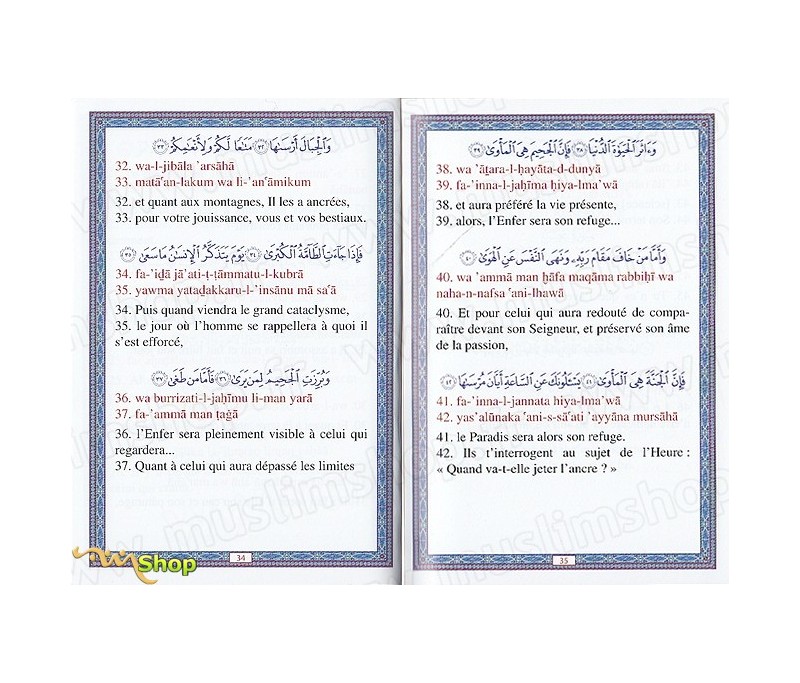 وَٱلْجِبَالَ أَرْسَىٰهَا ٣٢ مَتَٰعًا لَّكُمْ وَلِأَنْعَٰمِكُمْ ٣٣
32. wa-l-jibāla ’arsāhā
33. matā‘an-lakum wa li-’an‘āmikum
32. et quant aux montagnes, Il les a ancrées,
33. pour votre jouissance, vous et vos bestiaux.
فَإِذَا جَآءَتِ ٱلطَّآمَّةُ ٱلْكُبْرَىٰ ٣٤ يَوْمَ يَتَذَكَّرُ ٱلْإِنسَٰنُ مَا سَعَىٰ ٣٥
34. fa-’iḏā jā’ati-ṭ-ṭāmmatu-l-kubrā
35. yawma yataḏakkaru-l-’insānu mā sa‘ā
34. Puis quand viendra le grand cataclysme,
35. le jour où l’homme se rappellera à quoi il
s’est efforcé,
وَبُرِّزَتِ ٱلْجَحِيمُ لِمَن يَرَىٰ ٣٦ فَأَمَّا مَن طَغَىٰ ٣٧
36. wa burrizati-l-jaḥīmu li-man yarā
37. fa-’ammā man ṭaġā
36. l’Enfer sera pleinement visible à celui qui
regardera...
37. Quant à celui qui aura dépassé les limites
34
Shop
وَءَاثَرَ ٱلْحَيَوٰةَ ٱلدُّنْيَا ٣٨ فَإِنَّ ٱلْجَحِيمَ هِىَ ٱلْمَأْوَىٰ ٣٩
38. wa ’āṯara-l-ḥayāta-d-dunyā
39. fa-’inna-l-jaḥīma hiya-lma’wā
38. et aura préféré la vie présente,
39. alors, l’Enfer sera son refuge...
وَأَمَّا مَنْ خَافَ مَقَامَ رَبِّهِۦ وَنَهَى ٱلنَّفْسَ عَنِ ٱلْهَوَىٰ ٤٠
40. wa ’ammā man ḫāfa maqāma rabbihī wa
naha-n-nafsa ‘ani-lhawā
40. Et pour celui qui aura redouté de compa-
raître devant son Seigneur, et préservé son âme
de la passion,
فَإِنَّ ٱلْجَنَّةَ هِىَ ٱلْمَأْوَىٰ ٤١ يَسْـَٔلُونَكَ عَنِ ٱلسَّاعَةِ أَيَّانَ مُرْسَىٰهَا ٤٢
41. fa-’inna-l-jannata hiya-lma’wā
42. yas’alūnaka ‘ani-s-sā‘ati ’ayyāna mursāhā
41. le Paradis sera alors son refuge.
42. Ils t’interrogent au sujet de l’Heure :
« Quand va-t-elle jeter l’ancre ? »
35
www.muslimshop